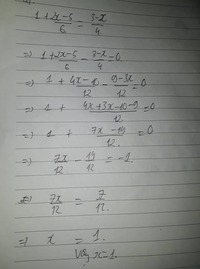 1 + 2x-5/6 = 3-x/4
=> 1 + 2x-5/6 - 3-x/4 = 0
=> 1 + 4x-10/12 - 9-3x/12 = 0
=> 1 + 4x+3x-10-9/12 = 0
=> 1 + 7x-19/12 = 0
=> 7x/12 - 19/12 = -1
=> 7x/12 = 7/12.
=> x = 1.
Vậy x=1.